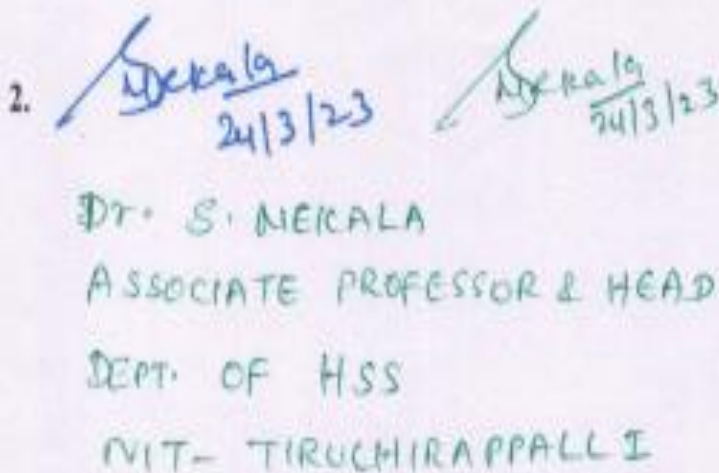 2. Mekala Mekala
24/3/23 24/3/23
Dr. S. MEKALA
ASSOCIATE PROFESSOR & HEAD
DEPT. OF HSS
NIT- TIRUCHIRAPPALLI